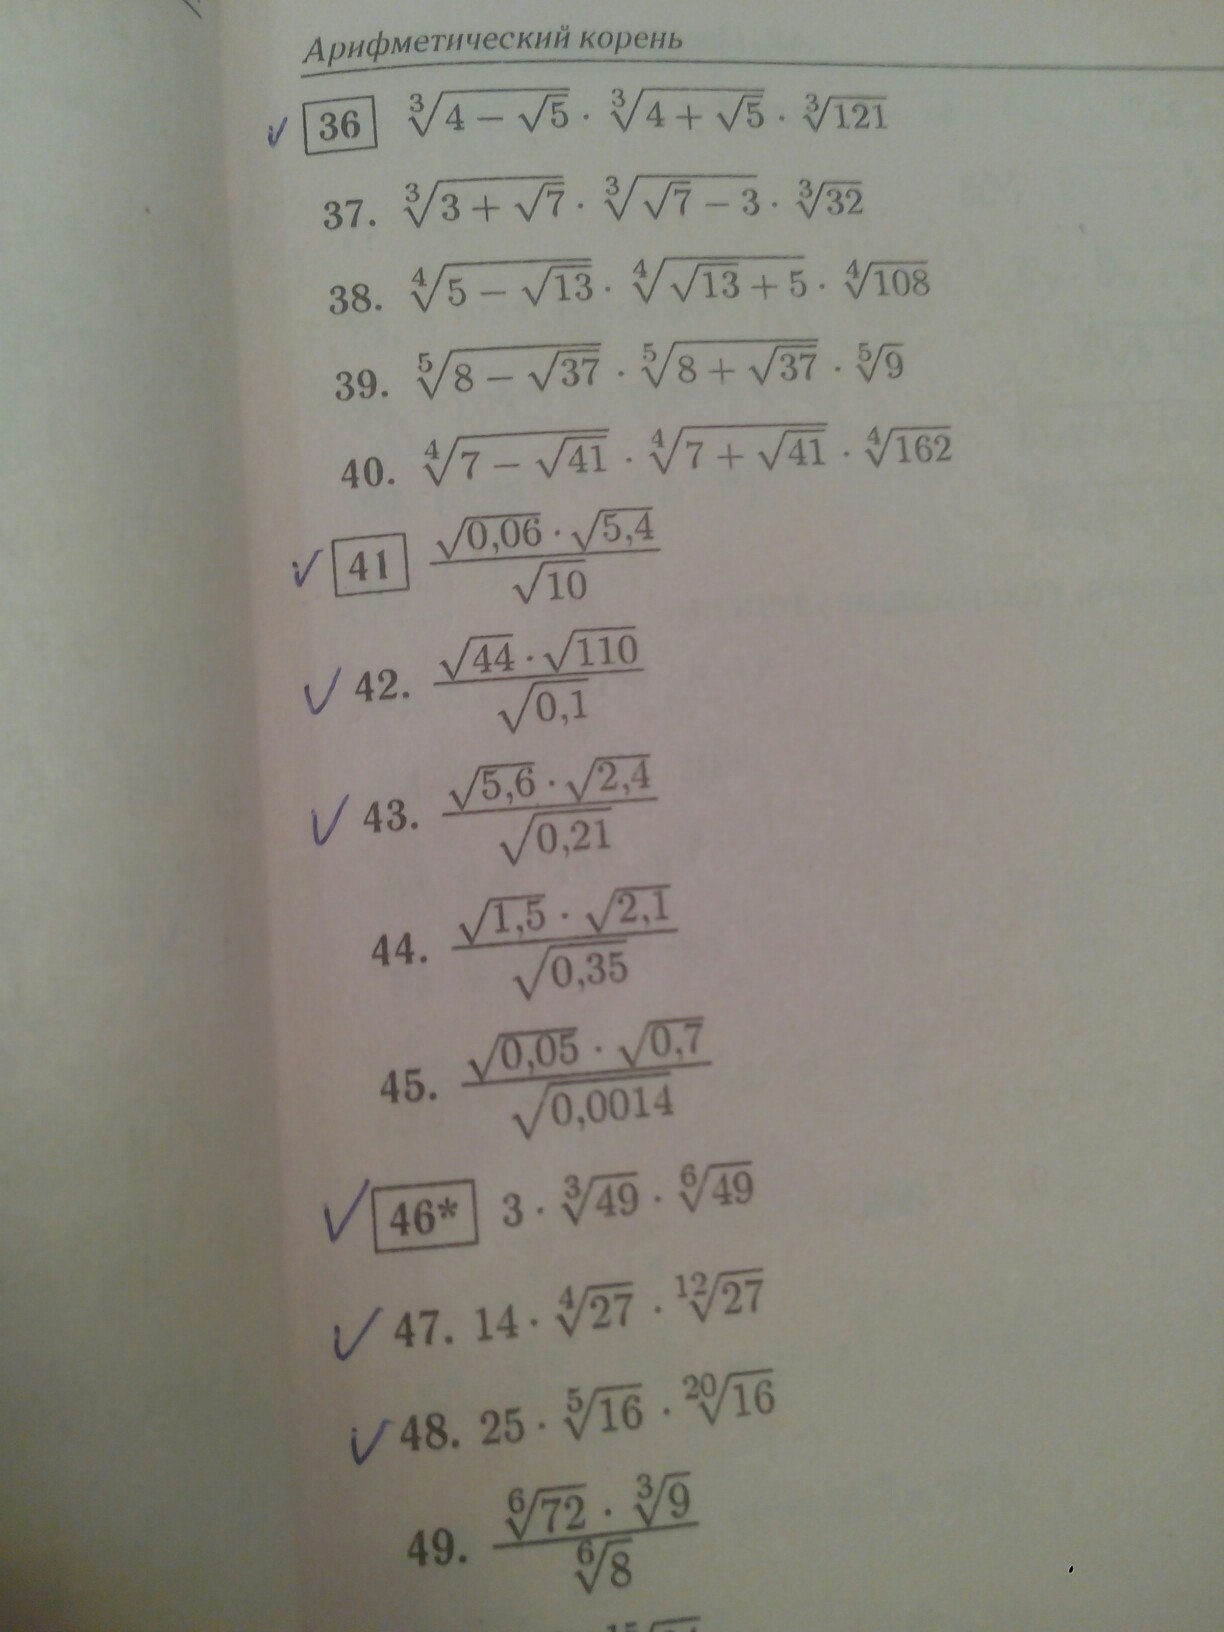 Арифметический корень
36 ∛(4 − √5) · ∛(4 + √5) · ∛121
37. ∛(3 + √7) · ∛(√7 − 3) · ∛32
38. ∜(5 − √13) · ∜(√13 + 5) · ∜108
39. ⁵√(8 − √37) · ⁵√(8 + √37) · ⁵√9
40. ∜(7 − √41) · ∜(7 + √41) · ∜162
41 (√0,06 · √5,4) / √10
42. (√44 · √110) / √0,1
43. (√5,6 · √2,4) / √0,21
44. (√1,5 · √2,1) / √0,35
45. (√0,05 · √0,7) / √0,0014
46* 3 · ∛49 · ⁶√49
47. 14 · ∜27 · ¹²√27
48. 25 · ⁵√16 · ²⁰√16
49. (⁶√72 · ∛9) / ⁶√8